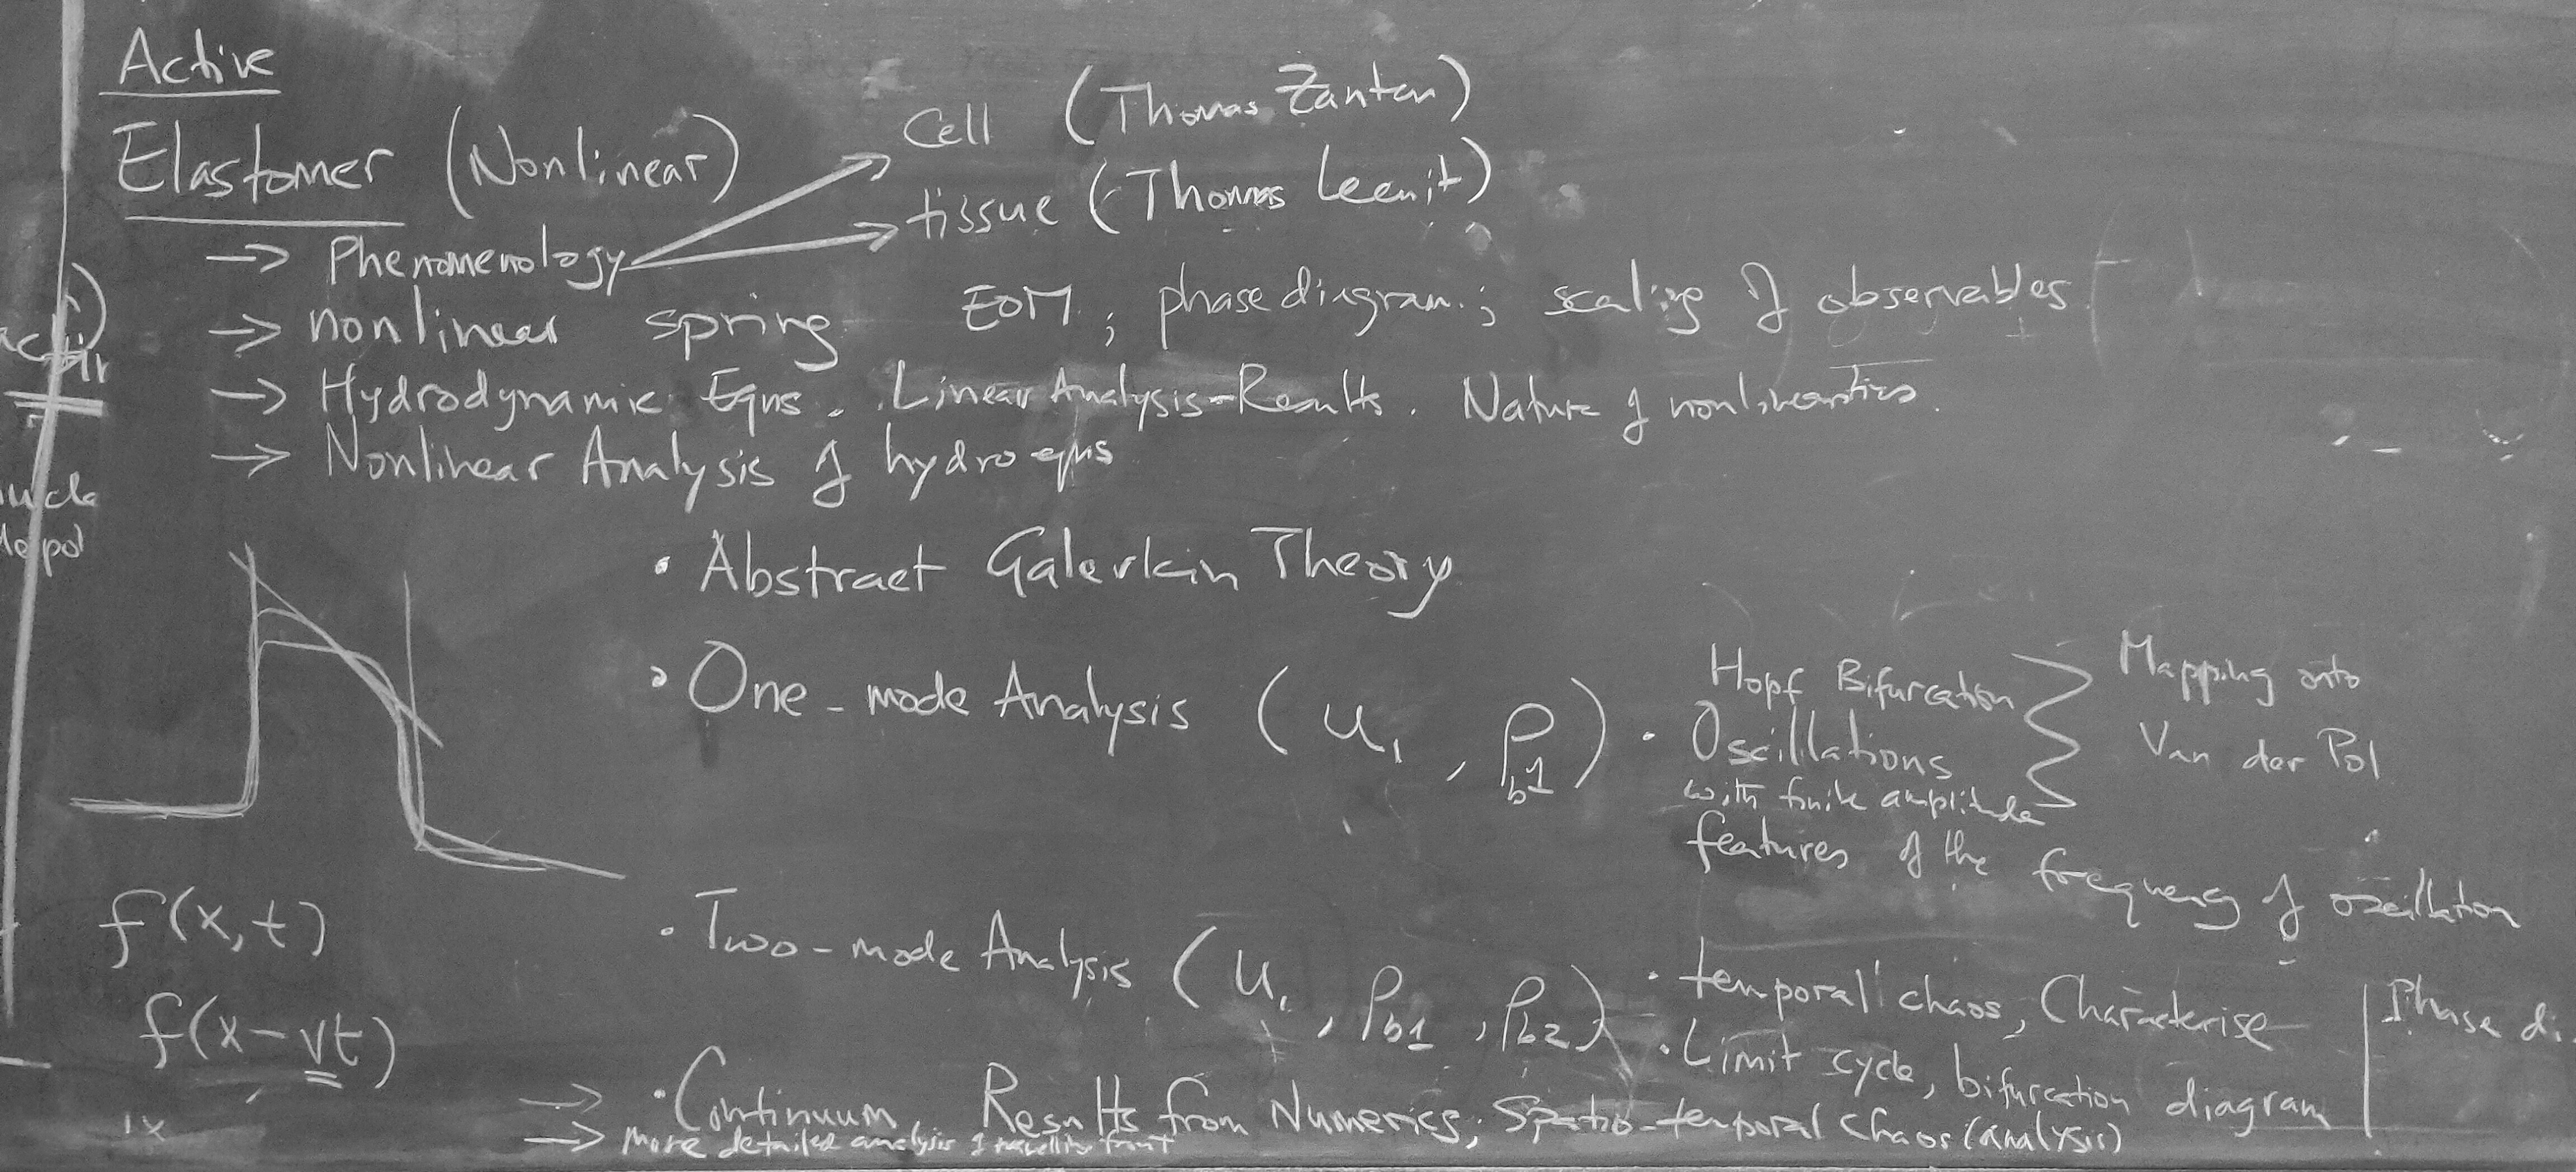 Active
Elastomer (Nonlinear)
Cell (Thomas Zanten)
tissue (Thomas Lecuit)
→ Phenomenology
→ nonlinear spring EOM ; phase diagram ; scaling of observables
→ Hydrodynamic Eqns. Linear Analysis-Results. Nature of nonlinearities.
→ Nonlinear Analysis of hydro eqns
• Abstract Galerkin Theory
• One-mode Analysis (u₁, ρb1)
Hopf Bifurcation
• Oscillations
with finite amplitude
Mapping onto
Van der Pol
features of the frequency of oscillation
• Two-mode Analysis (u₁, ρb1, ρb2)
• temporal chaos, Characterise
• Limit cycle, bifurcation diagram
Phase d.
→ • Continuum Results from Numerics; Spatio-temporal chaos (analysis)
→ More detailed analysis of travelling front
f(x,t)
f(x-vt)
depol